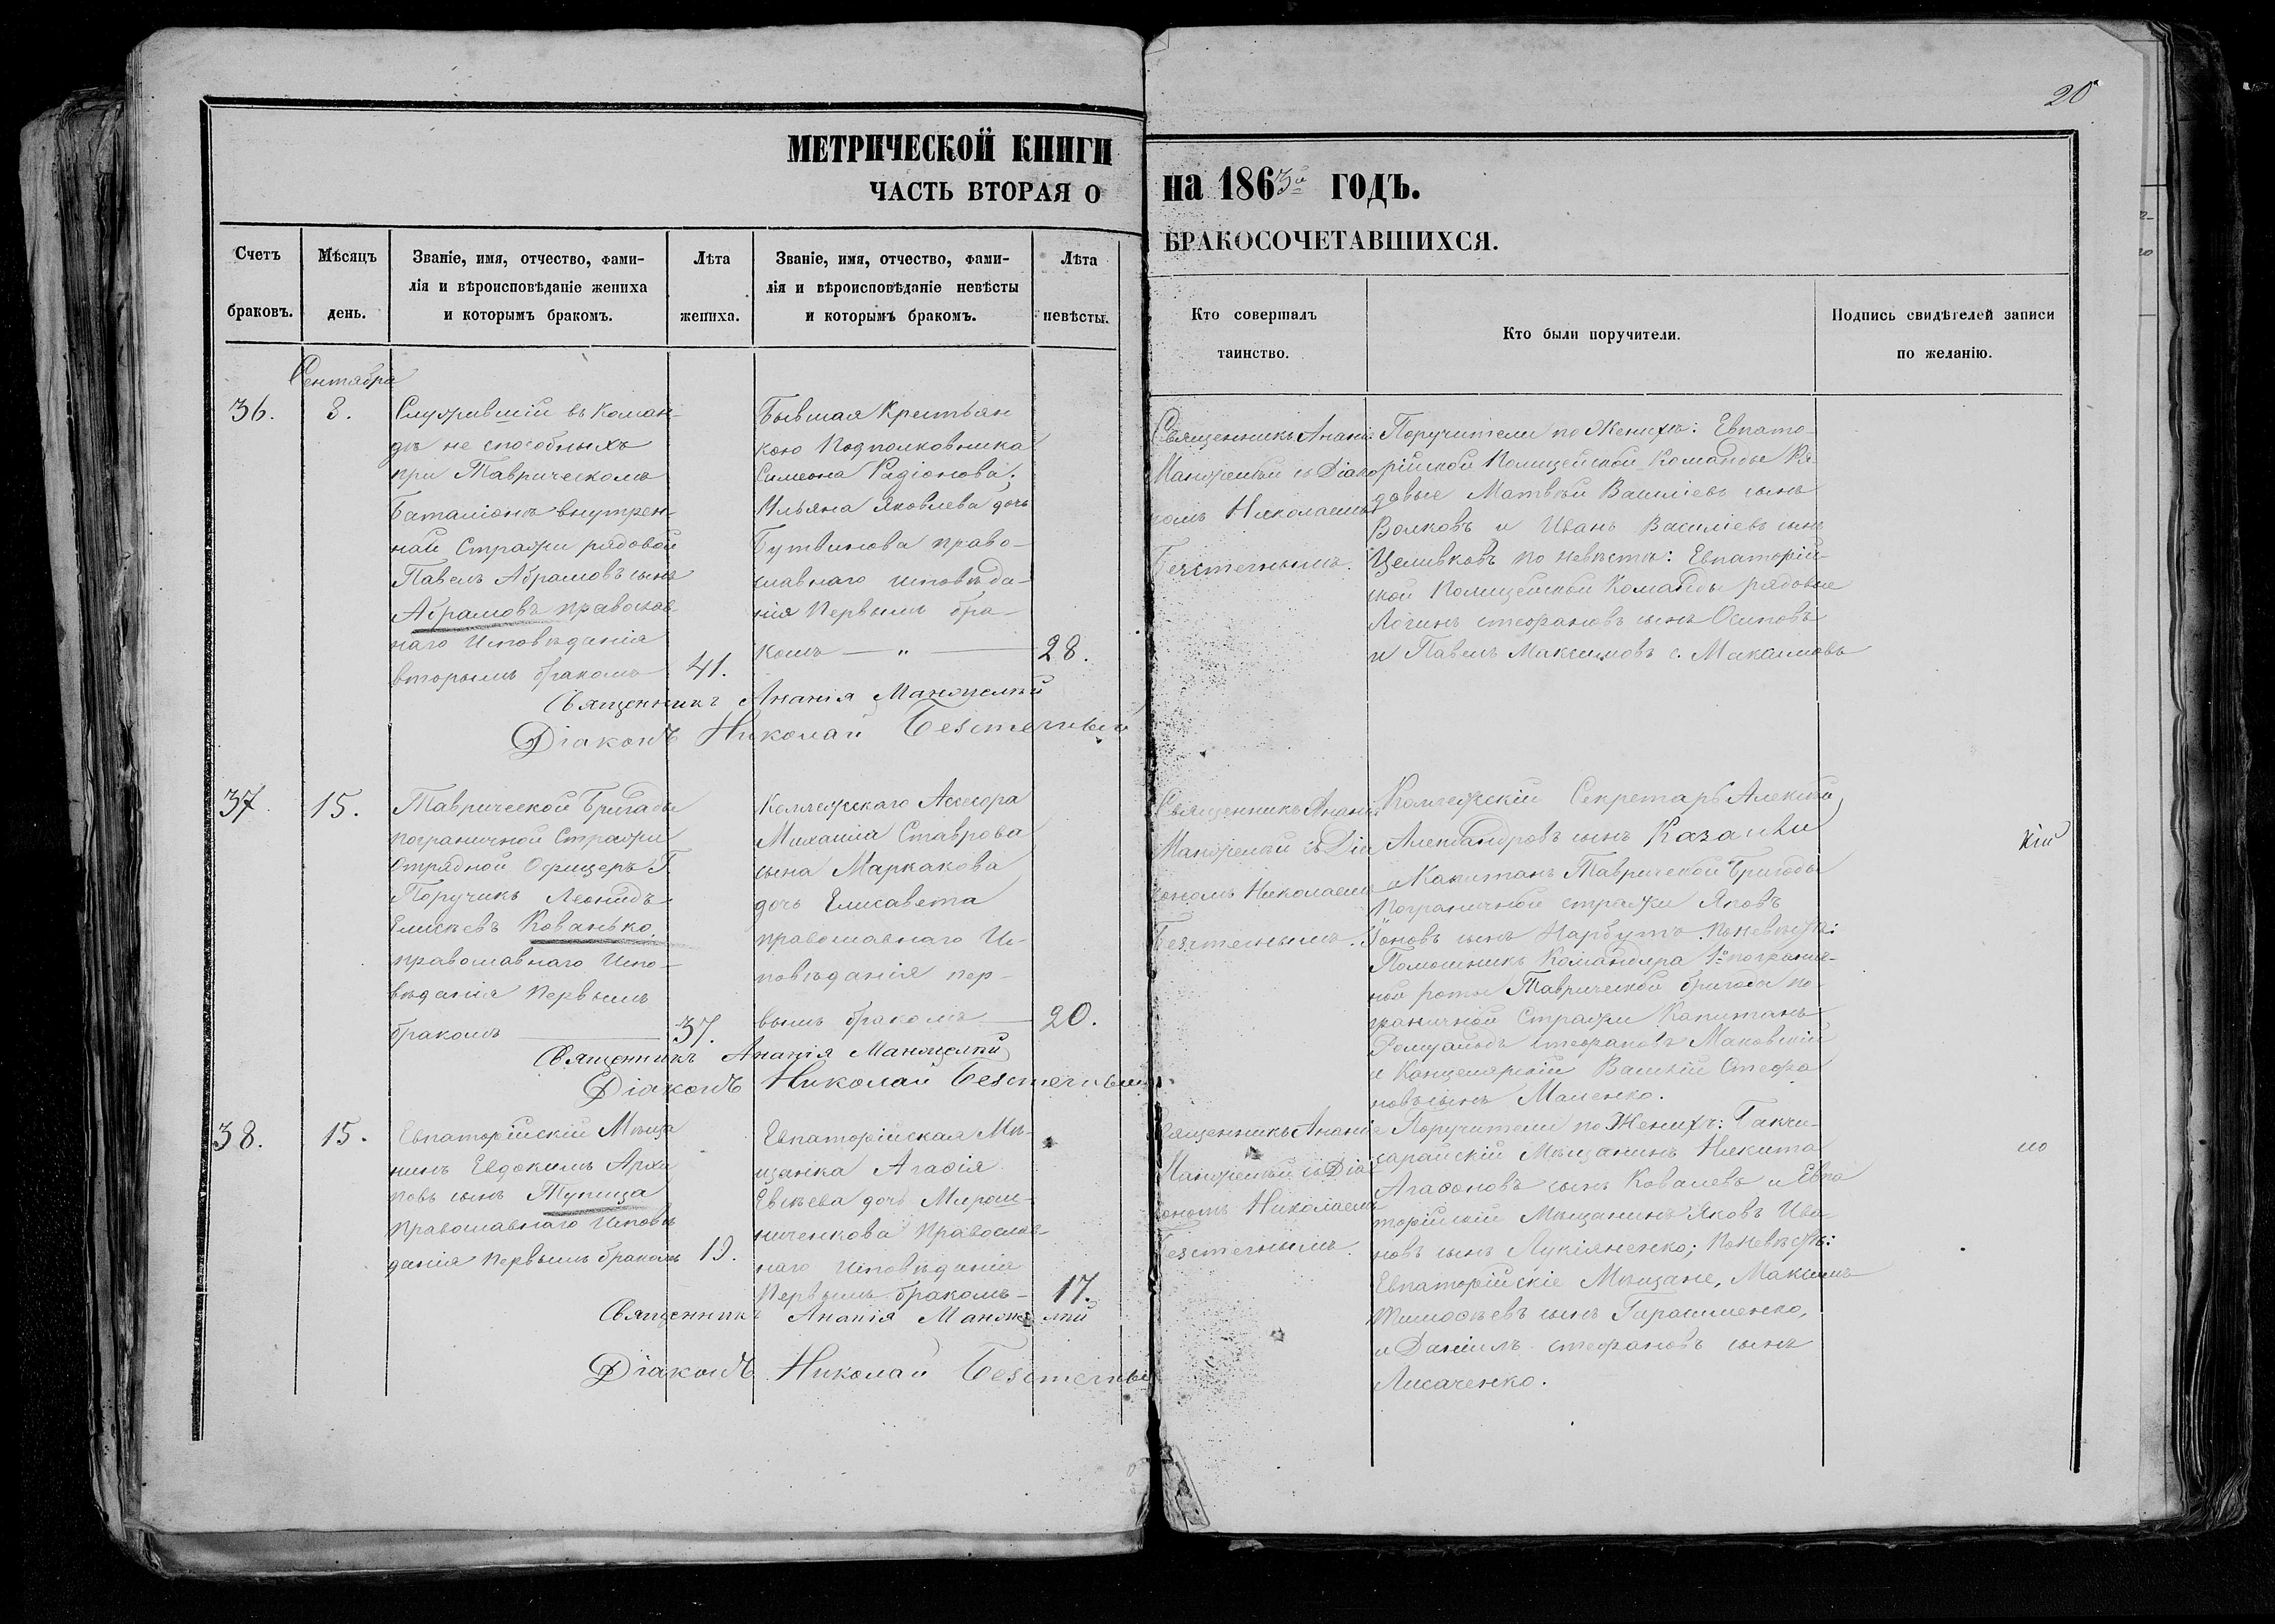 20
МЕТРИЧЕСКОЙ КНИГИ
ЧАСТЬ ВТОРАЯ О
Счетъ
браковъ.
Мѣсяцъ
день.
Званіе, имя, отчество, фами-
лія и вѣроисповѣданіе жениха
и которымъ бракомъ.
Лѣта
жениха.
Званіе, имя, отчество, фами-
лія и вѣроисповѣданіе невѣсты
и которымъ бракомъ.
Лѣта
невѣсты.
на 1863й годъ.
БРАКОСОЧЕТАВШИХСЯ.
Кто совершалъ
таинство.
Кто были поручители.
Подпись свидѣтелей записи
по желанію.
Сентября
36.
8.
Служившій въ коман-
дѣ не способныхъ
при Таврическомъ
Баталіонѣ внутрен-
ней Стражи рядовой
Павелъ Абрамовъ сынъ
Абрамовъ православ-
наго Исповѣданія
вторымъ бракомъ
41.
Бывшая Крестьян
кою Подполковника
Симеона Радіонова;
Ульяна Яковлева дочь
Бутвинова право-
славнаго исповѣда-
нія Первымъ бра-
комъ — „ —
28.
Священникъ Ананія Манжелѣй
Діаконъ Николай Безтечный
Священникъ Ананія
Манжелѣй съ Діако
номъ Николаемъ
Поручители по Женихѣ: Евпато-
рійской Полицейской Команды Ря-
довые Матвѣй Василіевъ сынъ
Волковъ и Иванъ Василіевъ сынъ
Целивковъ по Невѣстѣ: Евпаторій-
ской Полицейской Команды рядовые
Логинъ стефановъ сынъ Осиповъ
и Павелъ Максимовъ с. Максимовъ
37.
15.
Таврической Бригады
пограничной Стражи
Отрядной Офицеръ
Поручикъ Леонидъ
Елисѣевъ Кованько
православнаго Испо-
вѣданія Первымъ
бракомъ
37.
Коллежскаго Асесора
Михаила Ставрова
сына Маркакова
дочь Елисавета
православнаго Ис-
повѣданія пер-
вымъ бракомъ
20.
Священникъ Ананія Манжелѣй
Діаконъ Николай
Священникъ Ананія
Манжелѣй съ Діа
кономъ Николаемъ
Коллежскій Секретарь Алексѣй
Александровъ сынъ
и Капитанъ Таврической Бригады
Пограничной стражи Яковъ
сынъ Нарбутъ. По невѣстѣ:
Помошникъ Командира 1й погранич-
ной роты Таврической бригады по-
граничной Стражи Капитанъ
Ромуальдъ Стефановъ Маковскій
и Канцелярскій Василій Стефа
новъ сынъ Маленко.
кій
38.
15.
Евпаторійскій Мѣща
нинъ Евдокимъ Архи
повъ сынъ Тупица
Православнаго Исповѣ
данія Первымъ бракомъ
19.
Евпаторійская Мѣ-
щанка Агафія
Евсѣева дочь Мирош-
ниченкова Православ-
наго Исповѣданія
Первымъ бракомъ —
17.
Священникъ Ананія Манжелѣй
Діаконъ Николай
Священникъ Ананія
Манжелѣй съ Діа
кономъ Николаемъ
Поручители по Женихѣ: Бакчи-
сарайскій Мѣщанинъ Никита
Агафоновъ сынъ Ковалевъ и Евпа
торійскій Мѣщанинъ Яковъ Ива
новъ сынъ Лукіяненко; По Невѣстѣ:
Евпаторійскіе Мѣщане, Максимъ
Тимофѣевъ сынъ Гарашченко,
и Даніилъ стефановъ сынъ
Лисаченко.